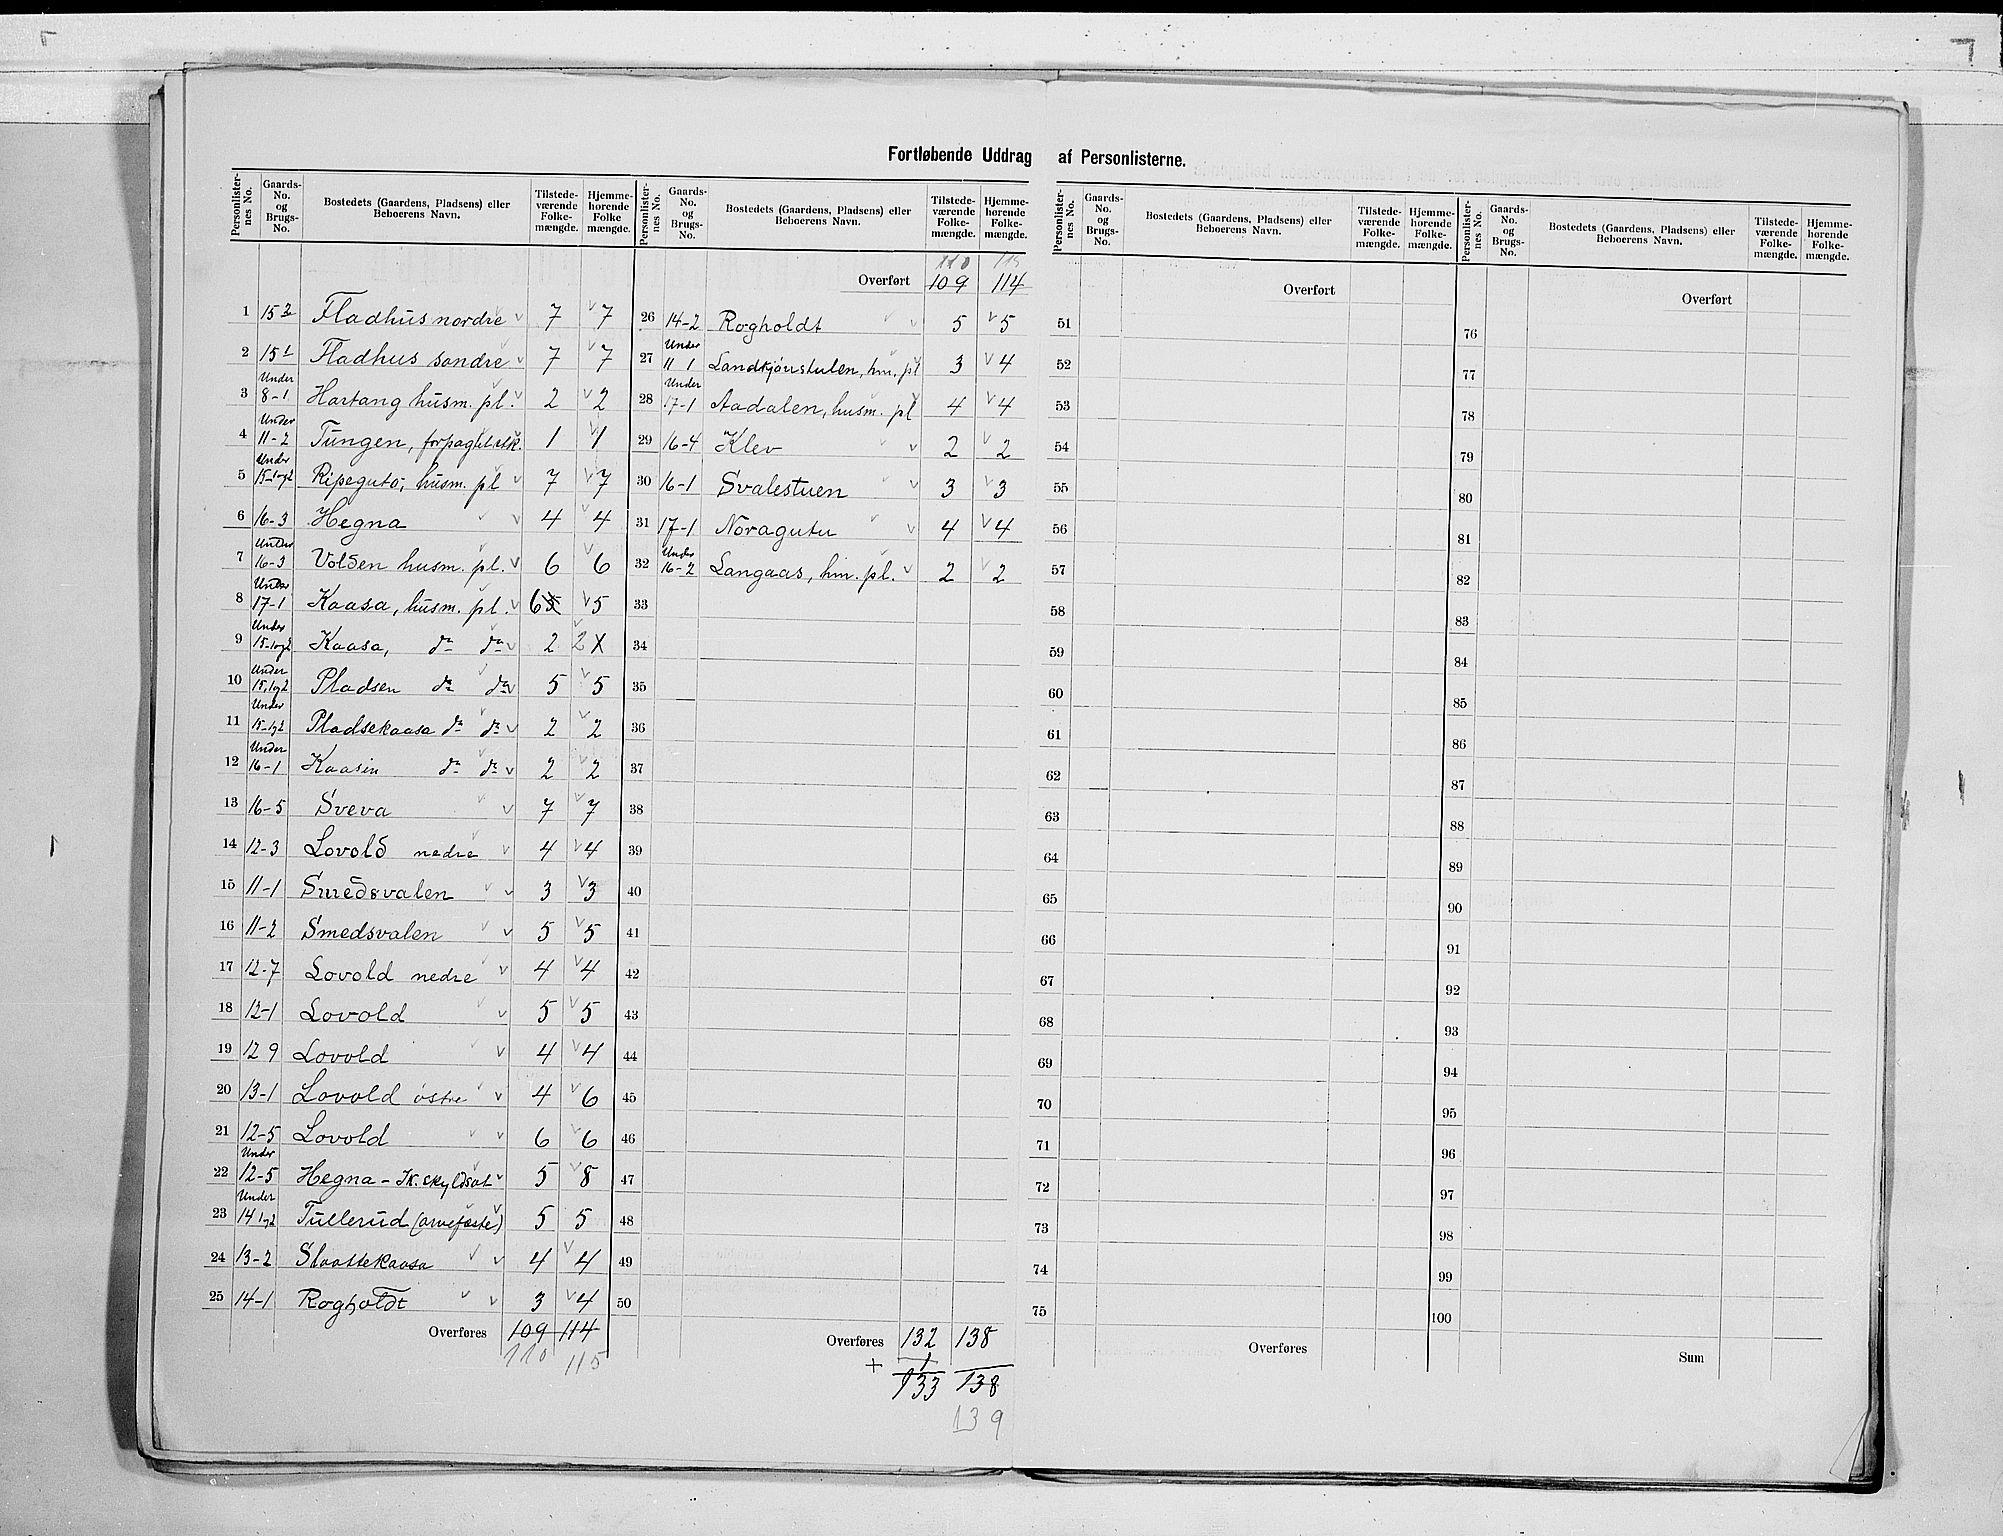 Fortløbende Uddrag af Personlisterne.
Personlister-nes No. Gaards-No. og Brugs-No. Bostedets (Gaardens, Pladsens) eller Beboerens Navn. Tilstede-værende Folke-mængde. Hjemme-hørende Folke mængde.
1 15 2 Fladhus nordre 7 7
2 15 1 Fladhus søndre 7 7
3 Under 8-1 Hartang husm. pl. 2 2
4 Under 11-2 Tungen, forpagtet stk. 1 1
5 Under 15-1 og 2 Ripeguto, husm. pl 7 7
6 16-3 Hegna 4 4
7 Under 16-3 Volden husm. pl. 6 6
8 Under 17-1 Kaasa, husm. pl. 6 5 5
9 Under 15-1 og 2 Kaasa, do do 2 2 X
10 Under 15, 1 og 2 Pladsen do do 5 5
11 Under 15-1 g 2 Pladsekaasa do do 2 2
12 Under 16-1 Kaasin do do 2 2
13 16-5 Sveva 7 7
14 12-3 Lovold nedre 4 4
15 11-1 Smedsvalen 3 3
16 11-2 Smedsvalen 5 5
17 12-7 Lovold nedre 4 4
18 12-1 Lovold 5 5
19 12 9 Lovold 4 4
20 13-1 Lovold østre 4 6
21 12-5 Lovold 6 6
22 Under 12-5 Hegna - Ik. skyldsat 5 8
23 Under 14 1 og 2 Tullerud (arvefæste) 5 5
24 13-2 Slaattekaasa 4 4
25 14-1 Rogholdt 3 4
Overføres 109 114
110 115
Personlister-nes No. Gaards-No. og Brugs-No. Bostedets (Gaardens, Pladsens) eller Beboerens Navn. Tilstede-værende Folke-mængde. Hjemme-hørende Folke-mængde.
110 115
Overført 109 114
26 14-2 Rogholdt 5 5
27 Under 11 1 Landkjønstulen, hm. pl 3 4
28 Under 17-1 Aadalen, husm. pl 4 4
29 16-4 Klev 2 2
30 16-1 Svalestuen 3 3
31 17-1 Noragutu 4 4
32 Under 16-2 Langaas, hm. pl. 2 2
33
34
35
36
37
38
39
40
41
42
43
44
45
46
47
48
49
50
Overføres 132 138
+ 1
133 138
139
Personlister-nes No. Gaards-No. og Brugs-No. Bostedets (Gaardens, Pladsens) eller Beboerens Navn. Tilstede-værende Folke-mængde. Hjemme-hørende Folke-mængde.
Overført
51
52
53
54
55
56
57
58
59
60
61
62
63
64
65
66
67
68
69
70
71
72
73
74
75
Overføres
Personlister-nes No. Gaards-No. og Brugs-No. Bostedets (Gaardens, Pladsens) eller Beboerens Navn. Tilstede-værende Folke-mængde. Hjemme-hørende Folke-mængde.
Overført
76
77
78
79
80
81
82
83
84
85
86
87
88
89
90
91
92
93
94
95
96
97
98
99
100
Sum